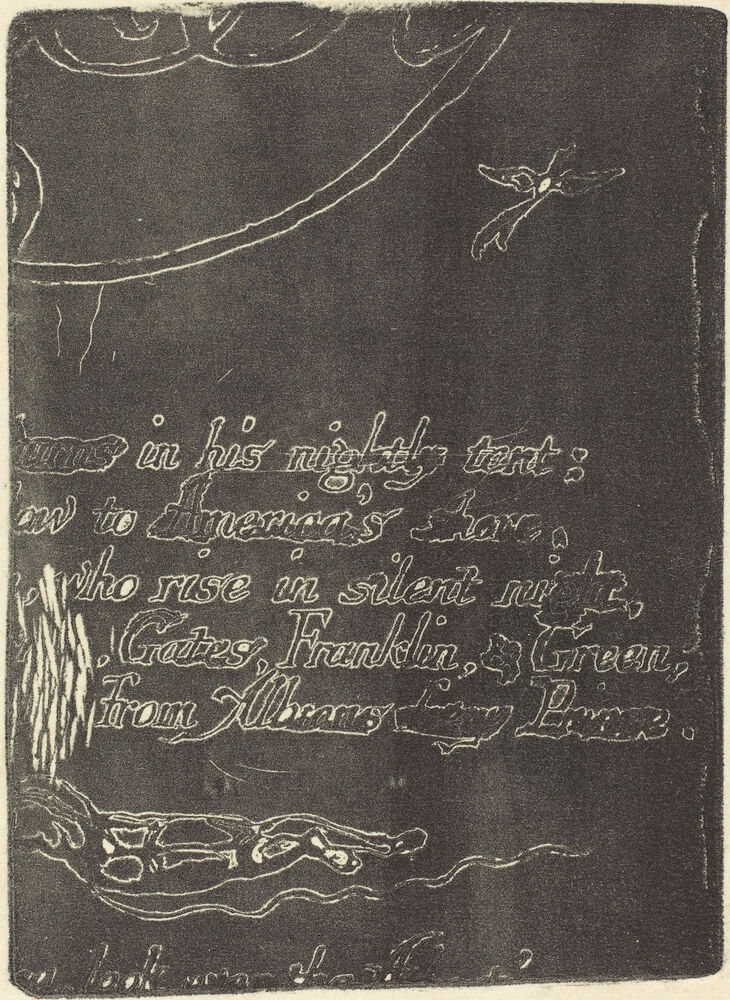 burns in his nightly tent:
low to America's shore,
, who rise in silent night,
, Gates, Franklin, & Green,
from Albions fiery Prince.
look